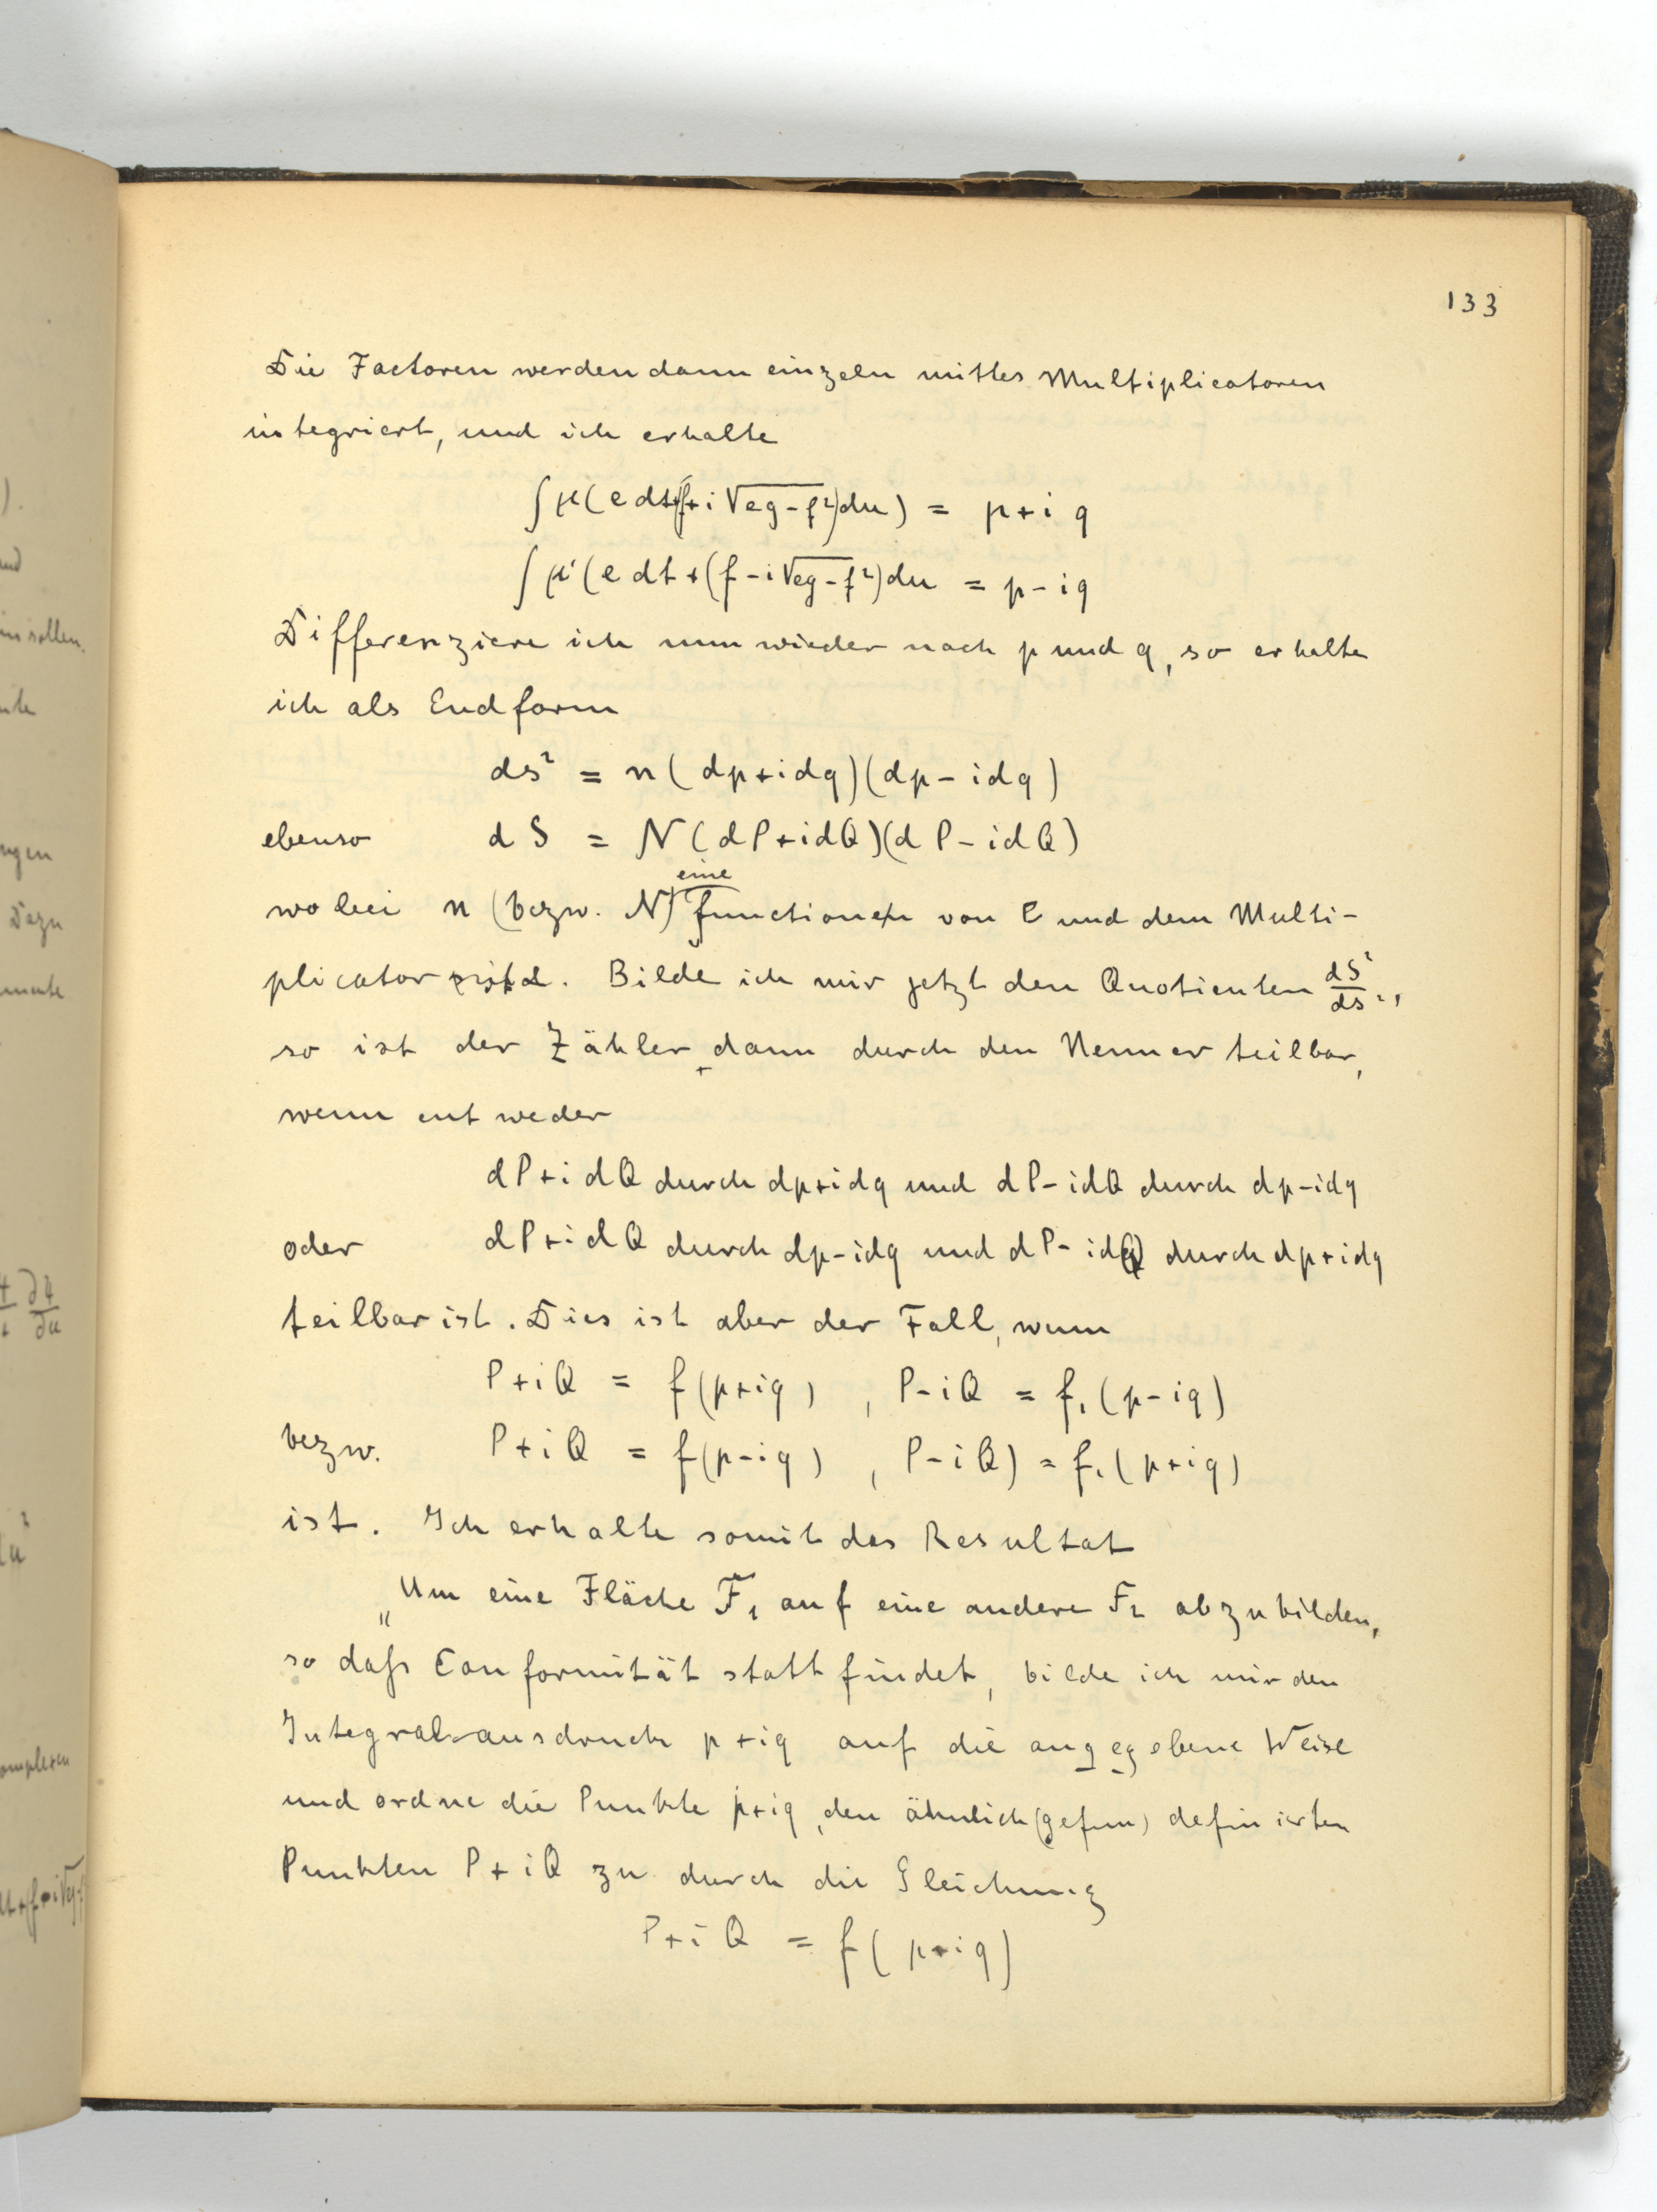 133
Die Factoren werden dann einzeln mittles Multiplicatoren
integriert, und ich erhalte
∫ μ (e dt + (f + i √eg - f²) du) = p + i q
∫ μ' (e dt + (f - i √eg - f²) du = p - i q
Differenziere ich nun wieder nach p und q, so erhalte
ich als Endform
ds² = n (dp + idq)(dp - idq)
ebenso dS = N (dP + idQ)(dP - idQ)
eine
wobei n (bezw. N) function von e und dem Multi-
plicator ist. Bilde ich mir jetzt den Quotienten dS²/ds²,
so ist der Zähler dann durch den Nenner teilbar,
wenn entweder
dP + i dQ durch dp + idq und dP - idQ durch dp - idq
oder dP + i dQ durch dp - idq und dP - idQ durch dp + idq
teilbar ist. Dies ist aber der Fall, wenn
P + iQ = f (p + iq) , P - iQ = f₁ (p - iq)
bezw. P + iQ = f (p - iq) , P - iQ) = f₁ (p + iq)
ist. Ich erhalte somit das Resultat
„Um eine Fläche F₁ auf eine andere F₂ abzubilden,
so daß Conformität stattfindet, bilde ich mir den
Integralausdruck p + iq auf die angegebene Weise
und ordne die Punkte p + iq, den ähnlich (gefun) definirten
Punkten P + iQ zu durch die Gleichung
P + i Q = f ( p + iq)
in sollen.
ngen
Dazu
omplexen